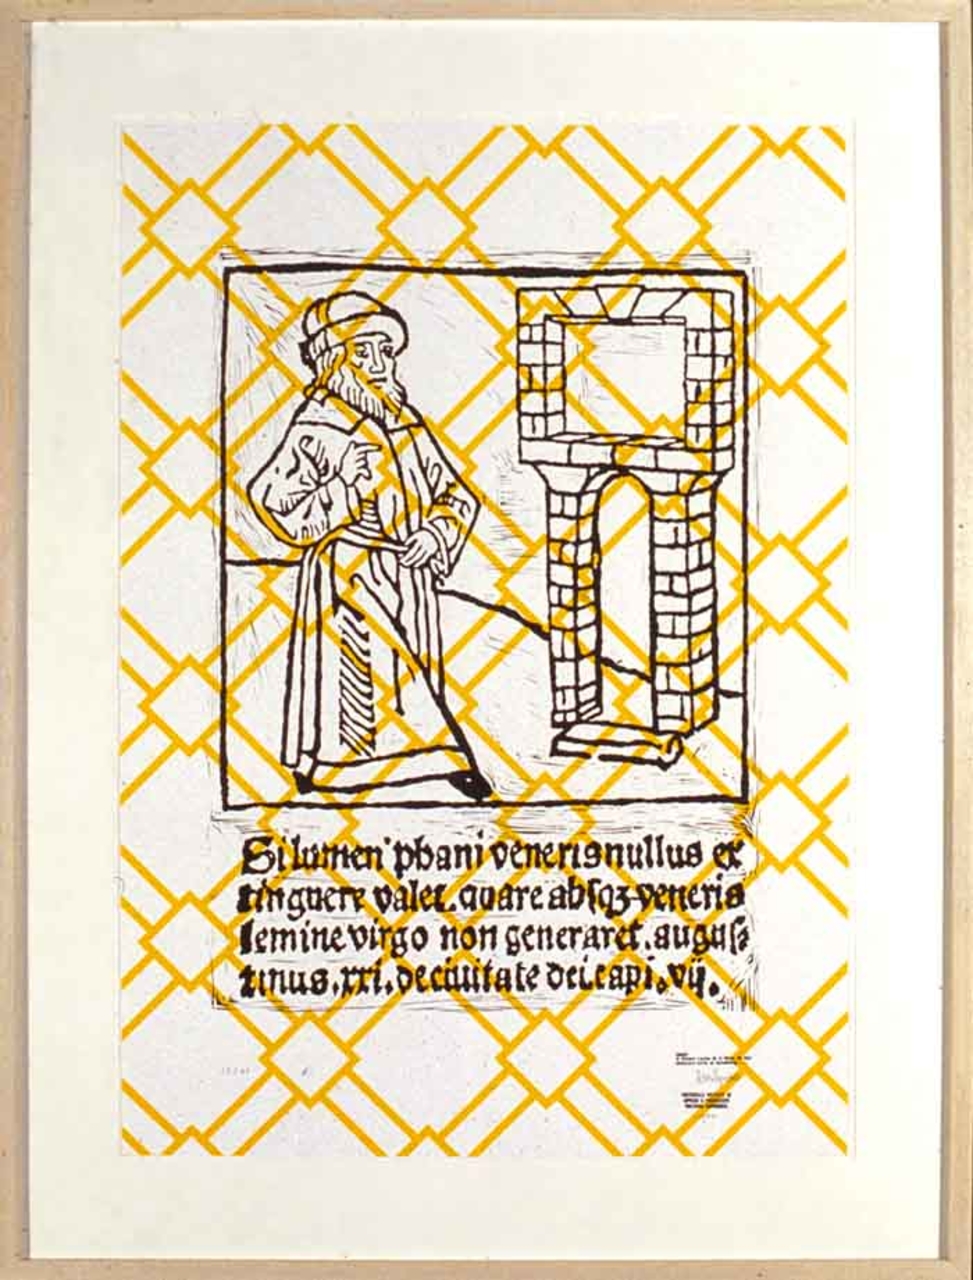 Si lumen phani veneris nullus ex
tinguere valet. quare absqz veneris
semine virgo non generaret. augus
tinus. xxi. de ciuitate dei. capi. vij.